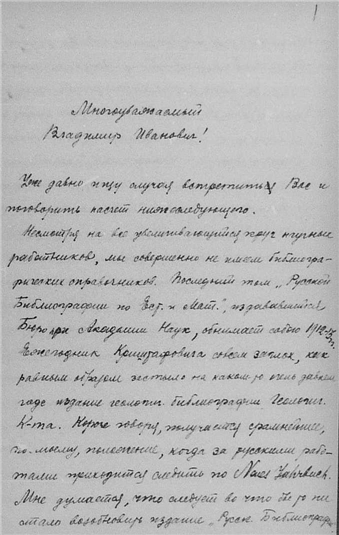 1
Многоуважаемый
Владимир Иванович!
Уже давно ищу случая встретить Вас и
поговорить насчет нижеследующего.
Несмотря на все увеличивающийся круг научных
работников, мы совершенно не имеем библиогра-
фических справочников. Последний том „Русской
Библиографии по Ест. и Мат.", издававшейся
Бюро при Академии Наук, обнимает собою
Ежегодник Криштафовича совсем заглох, как
равным образом застыло на каком-то очень давнем
годе издание геологич. библиографии Геологич.
К-та. Короче говоря, получается срамнейшее,
по-моему, положение, когда за русскими рабо-
тами приходится следить по
Мне думается, что следует во что бы то ни
стало возобновить издание „Русск. Библиограф